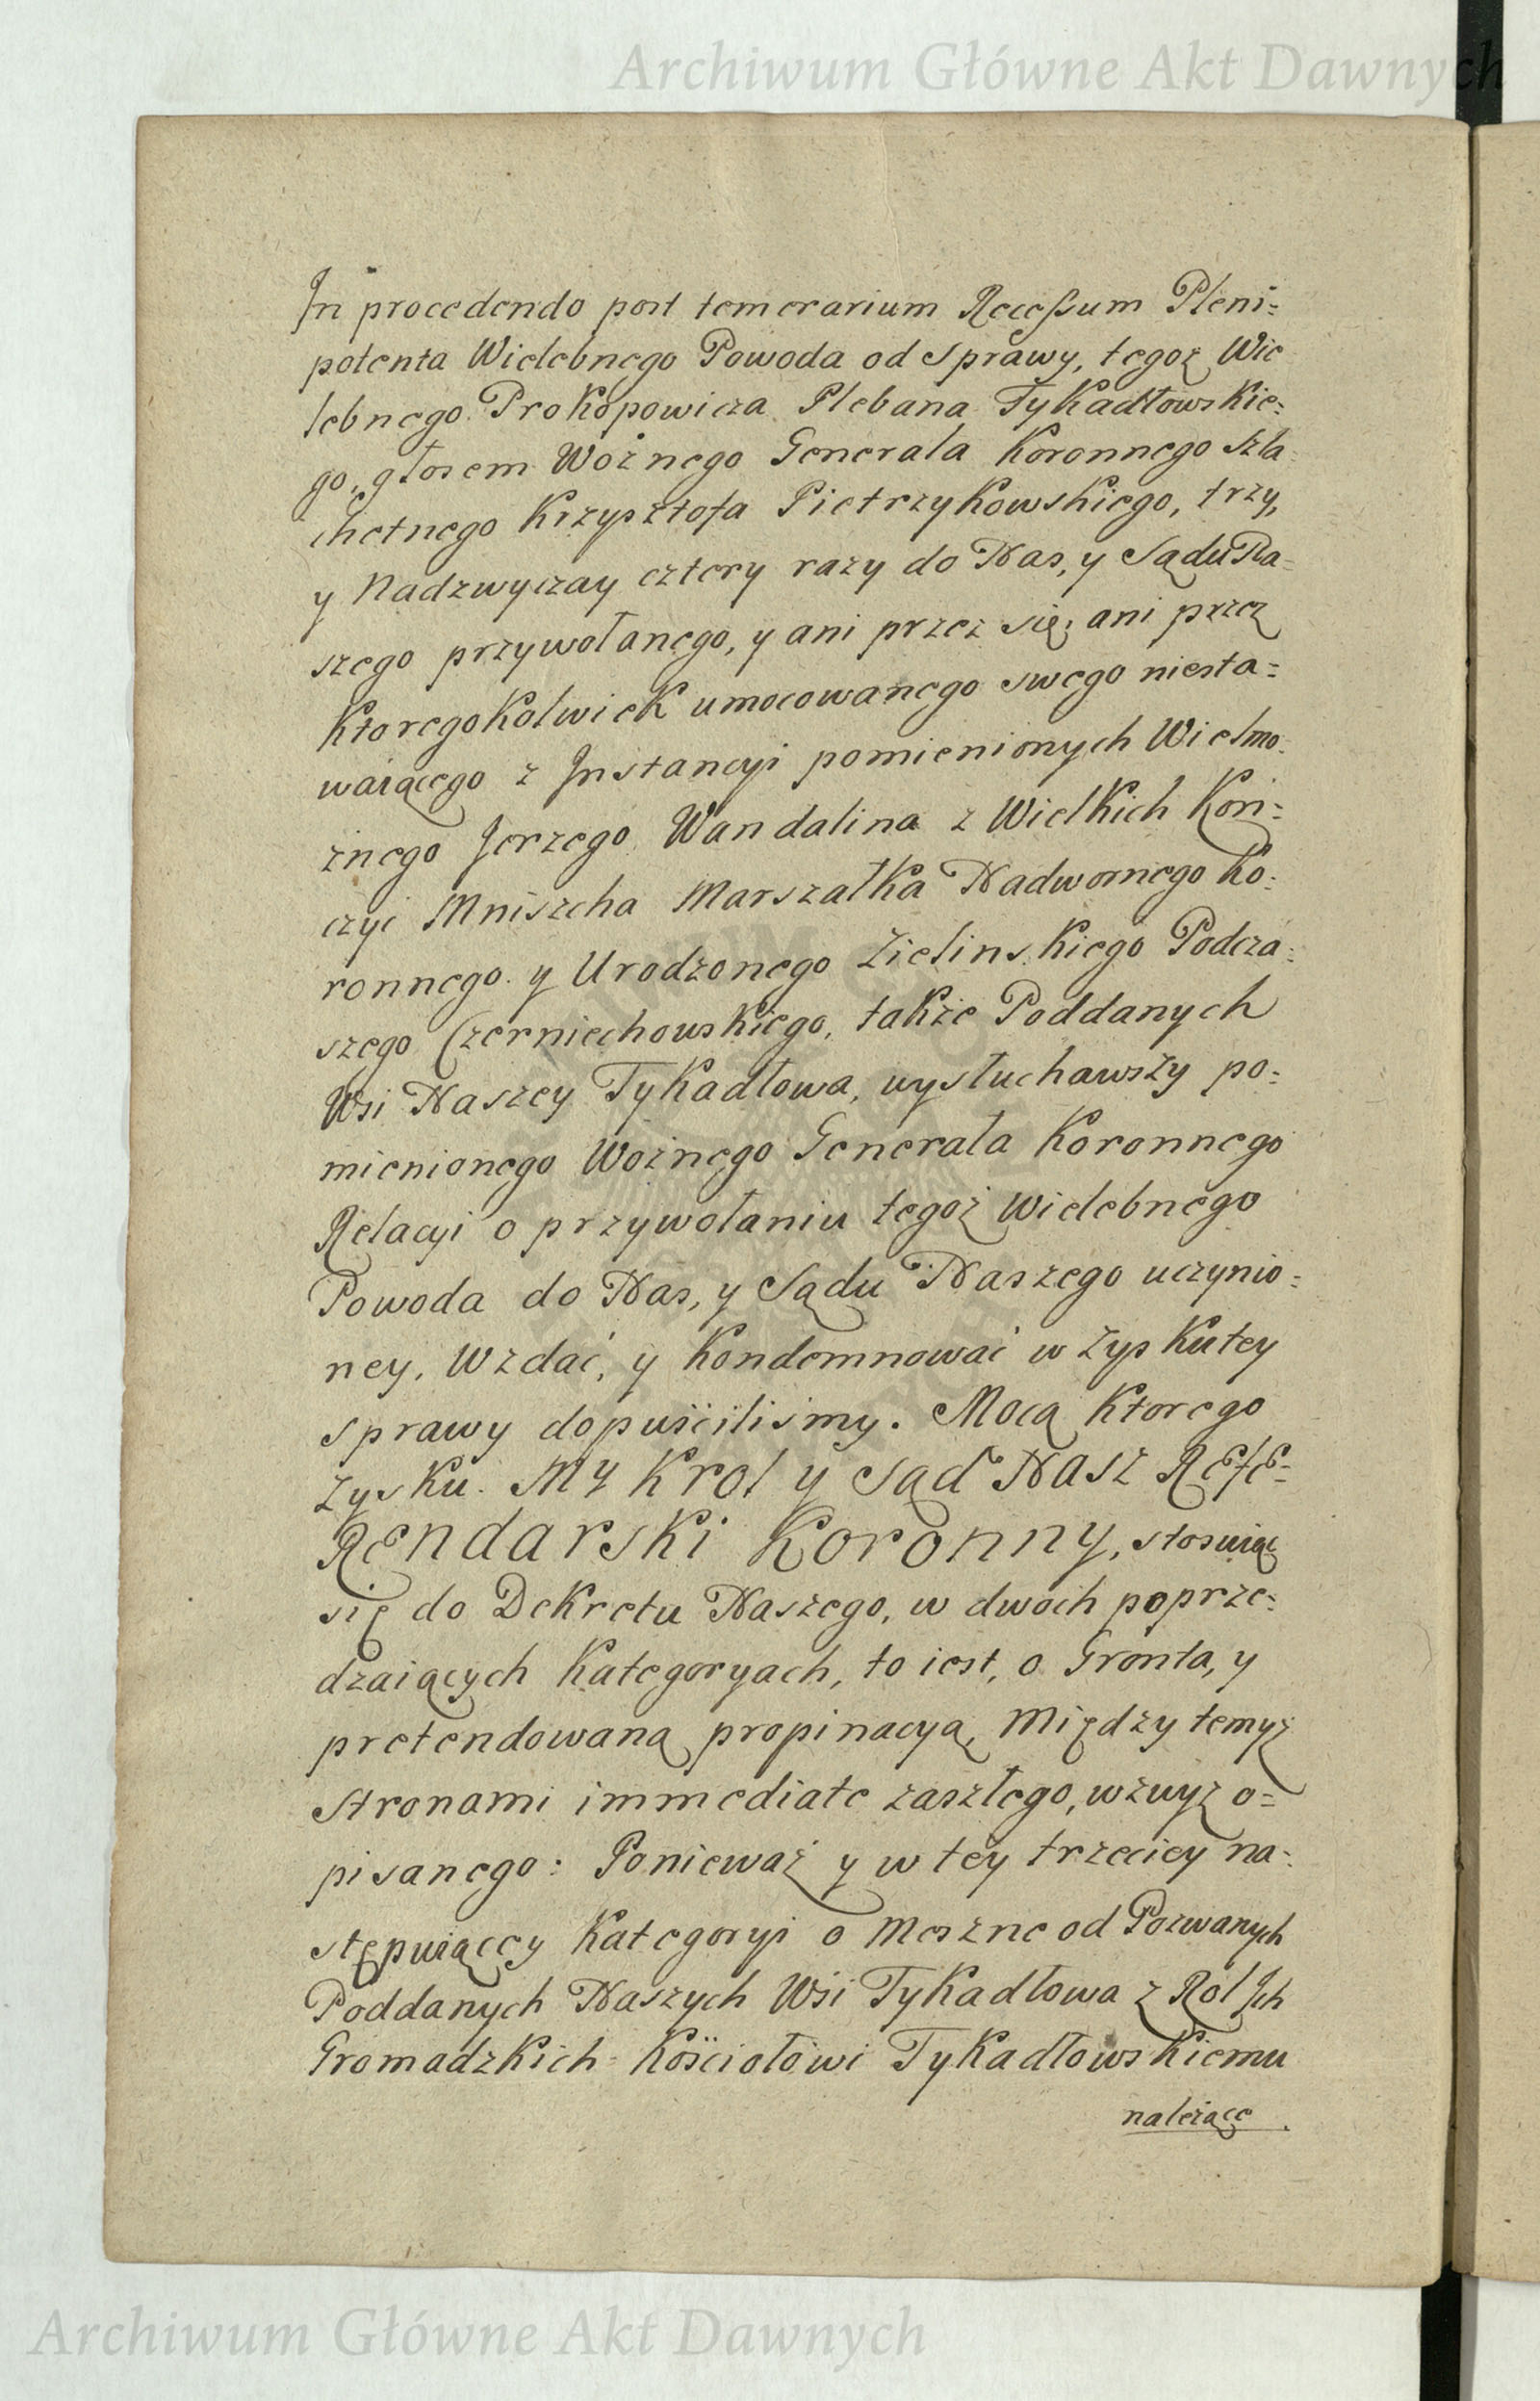 Archiwum Główne Akt Dawnych
In procedendo post temerarium Recessum Pleni=
potenta Wielebnego Powoda od Sprawy, tegoż Wie
lebnego Prokopowicza Plebana Tykadłowskie=
go, głosem Woźnego Generała Koronnego Szla=
chetnego Krzysztofa Pietrzykowskiego, trzy,
y Nadzwyczay cztery razy do Nas, y Sądu Na=
szego przywołanego, y ani przez się, ani przez
Ktoregokolwiek umocowanego swego niesta=
waiącego z Jnstancyi pomienionych Wielmo=
żnego Jerzego Wandalina z Wielkich Koń=
czyc Mniszcha Marszałka Nadwornego Ko=
ronnego y Urodzonego Zielinskiego Podcza=
szego Czerniechowskiego, także Poddanych
Wsi Naszey Tykadłowa, wysłuchawszy po=
mienionego Woźnego Generała Koronnego
Relacyi o przywołaniu tegoż Wielebnego
Powoda do Nas, y Sądu Naszego uczynio=
ney, Wzdać, y Kondemnować w Zyskutey
sprawy dopuściliśmy. Mocą Ktorego
Zysku. My Krol y Sąd Nasz Refe=
rendarski Koronny, stosuiąc
się do Dekretu Naszego, w dwoch poprze=
dzaiących Kategoryach, to iest, o Gronta, y
pretendowaną propinacyą, Między temyż
Stronami immediate zaszłego, wzwyż o=
pisanego: Ponieważ y w tey trzeciey na=
stępuiącey Kategoryi o Meszne od Pozwanych
Poddanych Naszych Wsi Tykadłowa z Rol Jch
Gromadzkich Kościołowi Tykadłowskiemu
należące.
Archiwum Główne Akt Dawnych